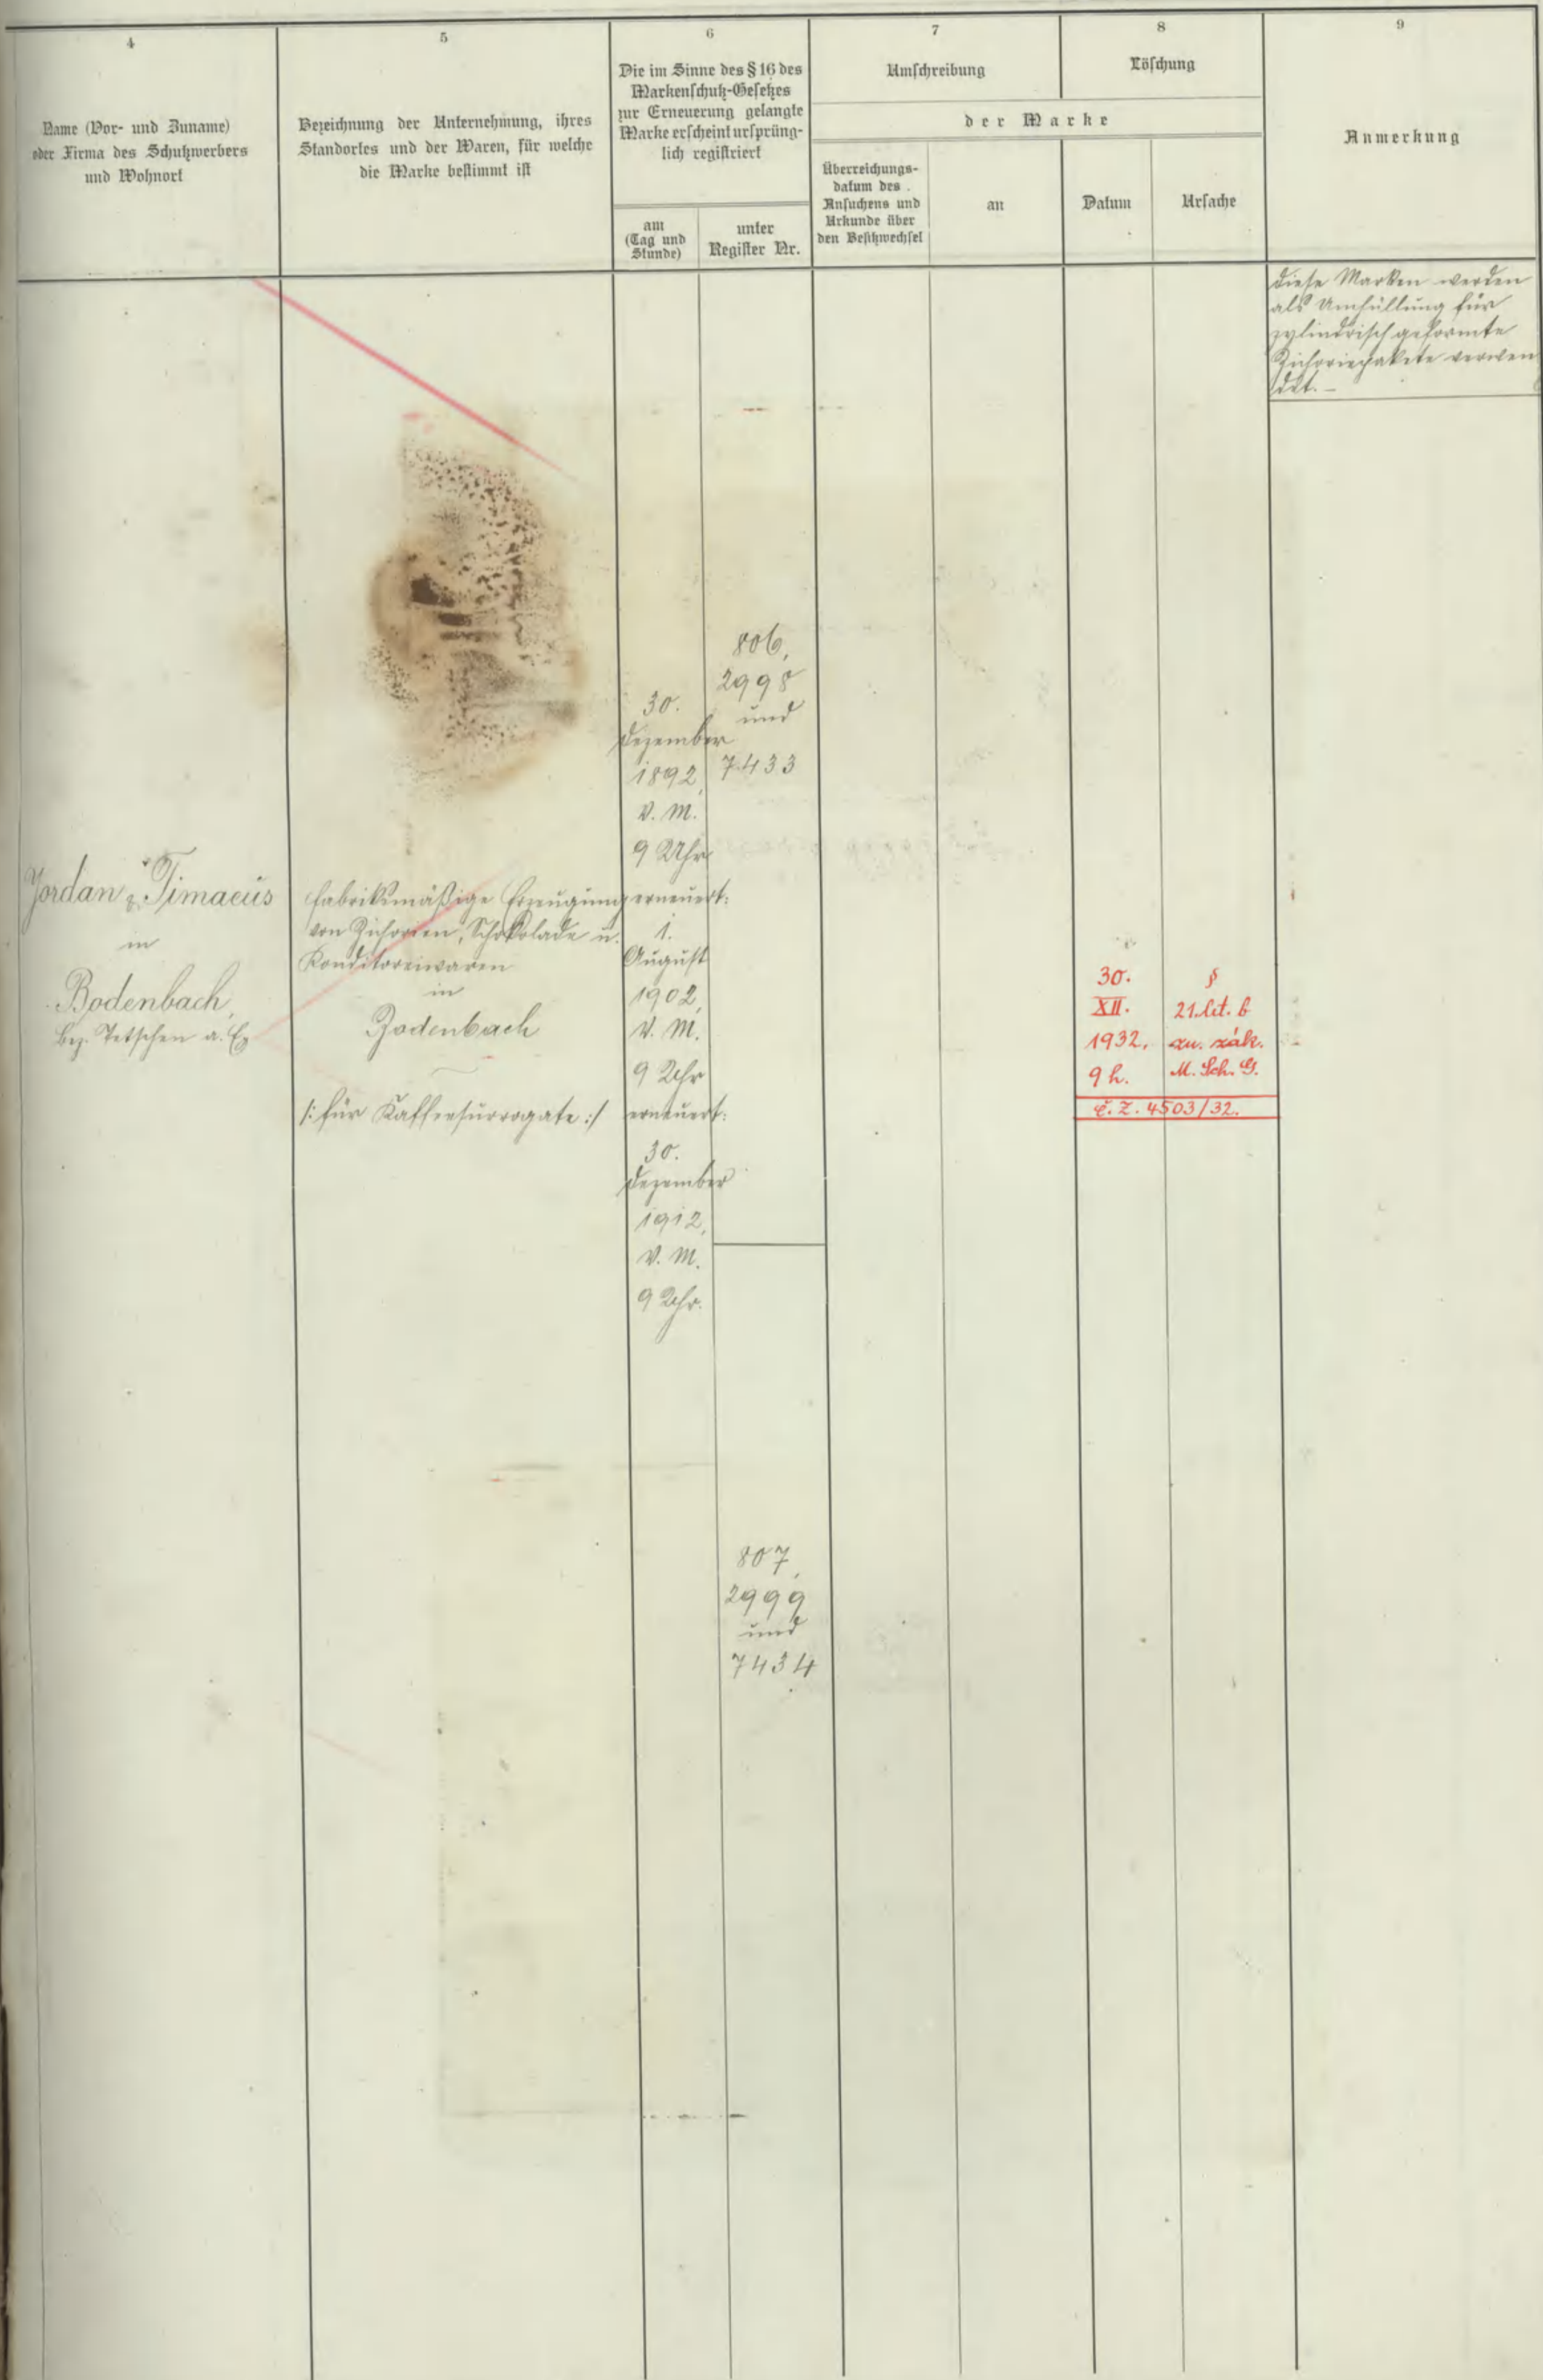 4
Name (Vor- und Zuname)
oder Firma des Schutzwerbers
und Wohnort
5
Bezeichnung der Unternehmung, ihres
Standortes und der Waren, für welche
die Marke bestimmt ist
6
Die im Sinne des § 16 des
Markenschutz-Gesetzes
zur Erneuerung gelangte
Marke erscheint ursprüng-
lich registriert
am
(Tag und
Stunde)
unter
Register Nr.
7
Umschreibung
8
Löschung
der Marke
Überreichungs-
datum des
Ansuchens und
Urkunde über
den Besitzwechsel
an
Datum
Ursache
9
Anmerkung
Jordan & Timaeus
in
Bodenbach,
Bez. Tetschen a. E.
fabriksmäßige Erzeugung
von Zichorien, Schokolade u.
Konditoreiwaren
in
Bodenbach
/: für Kaffeesurrogate :/
30.
Dezember
1892,
V. M.
9 Uhr
erneuert:
1.
August
1902,
V. M.
9 Uhr
erneuert:
30.
Dezember
1912,
V. M.
9 Uhr.
806,
2998
und
7433
807,
2999
und
7434
30.
XII.
1932.
9 h.
§
21. lit. b
zn. zák.
M. Sch. G.
č. Z. 4503/32.
Diese Marken werden
als Umhüllung für
zylindrisch geformte
Zichoriepakete verwen
det. –